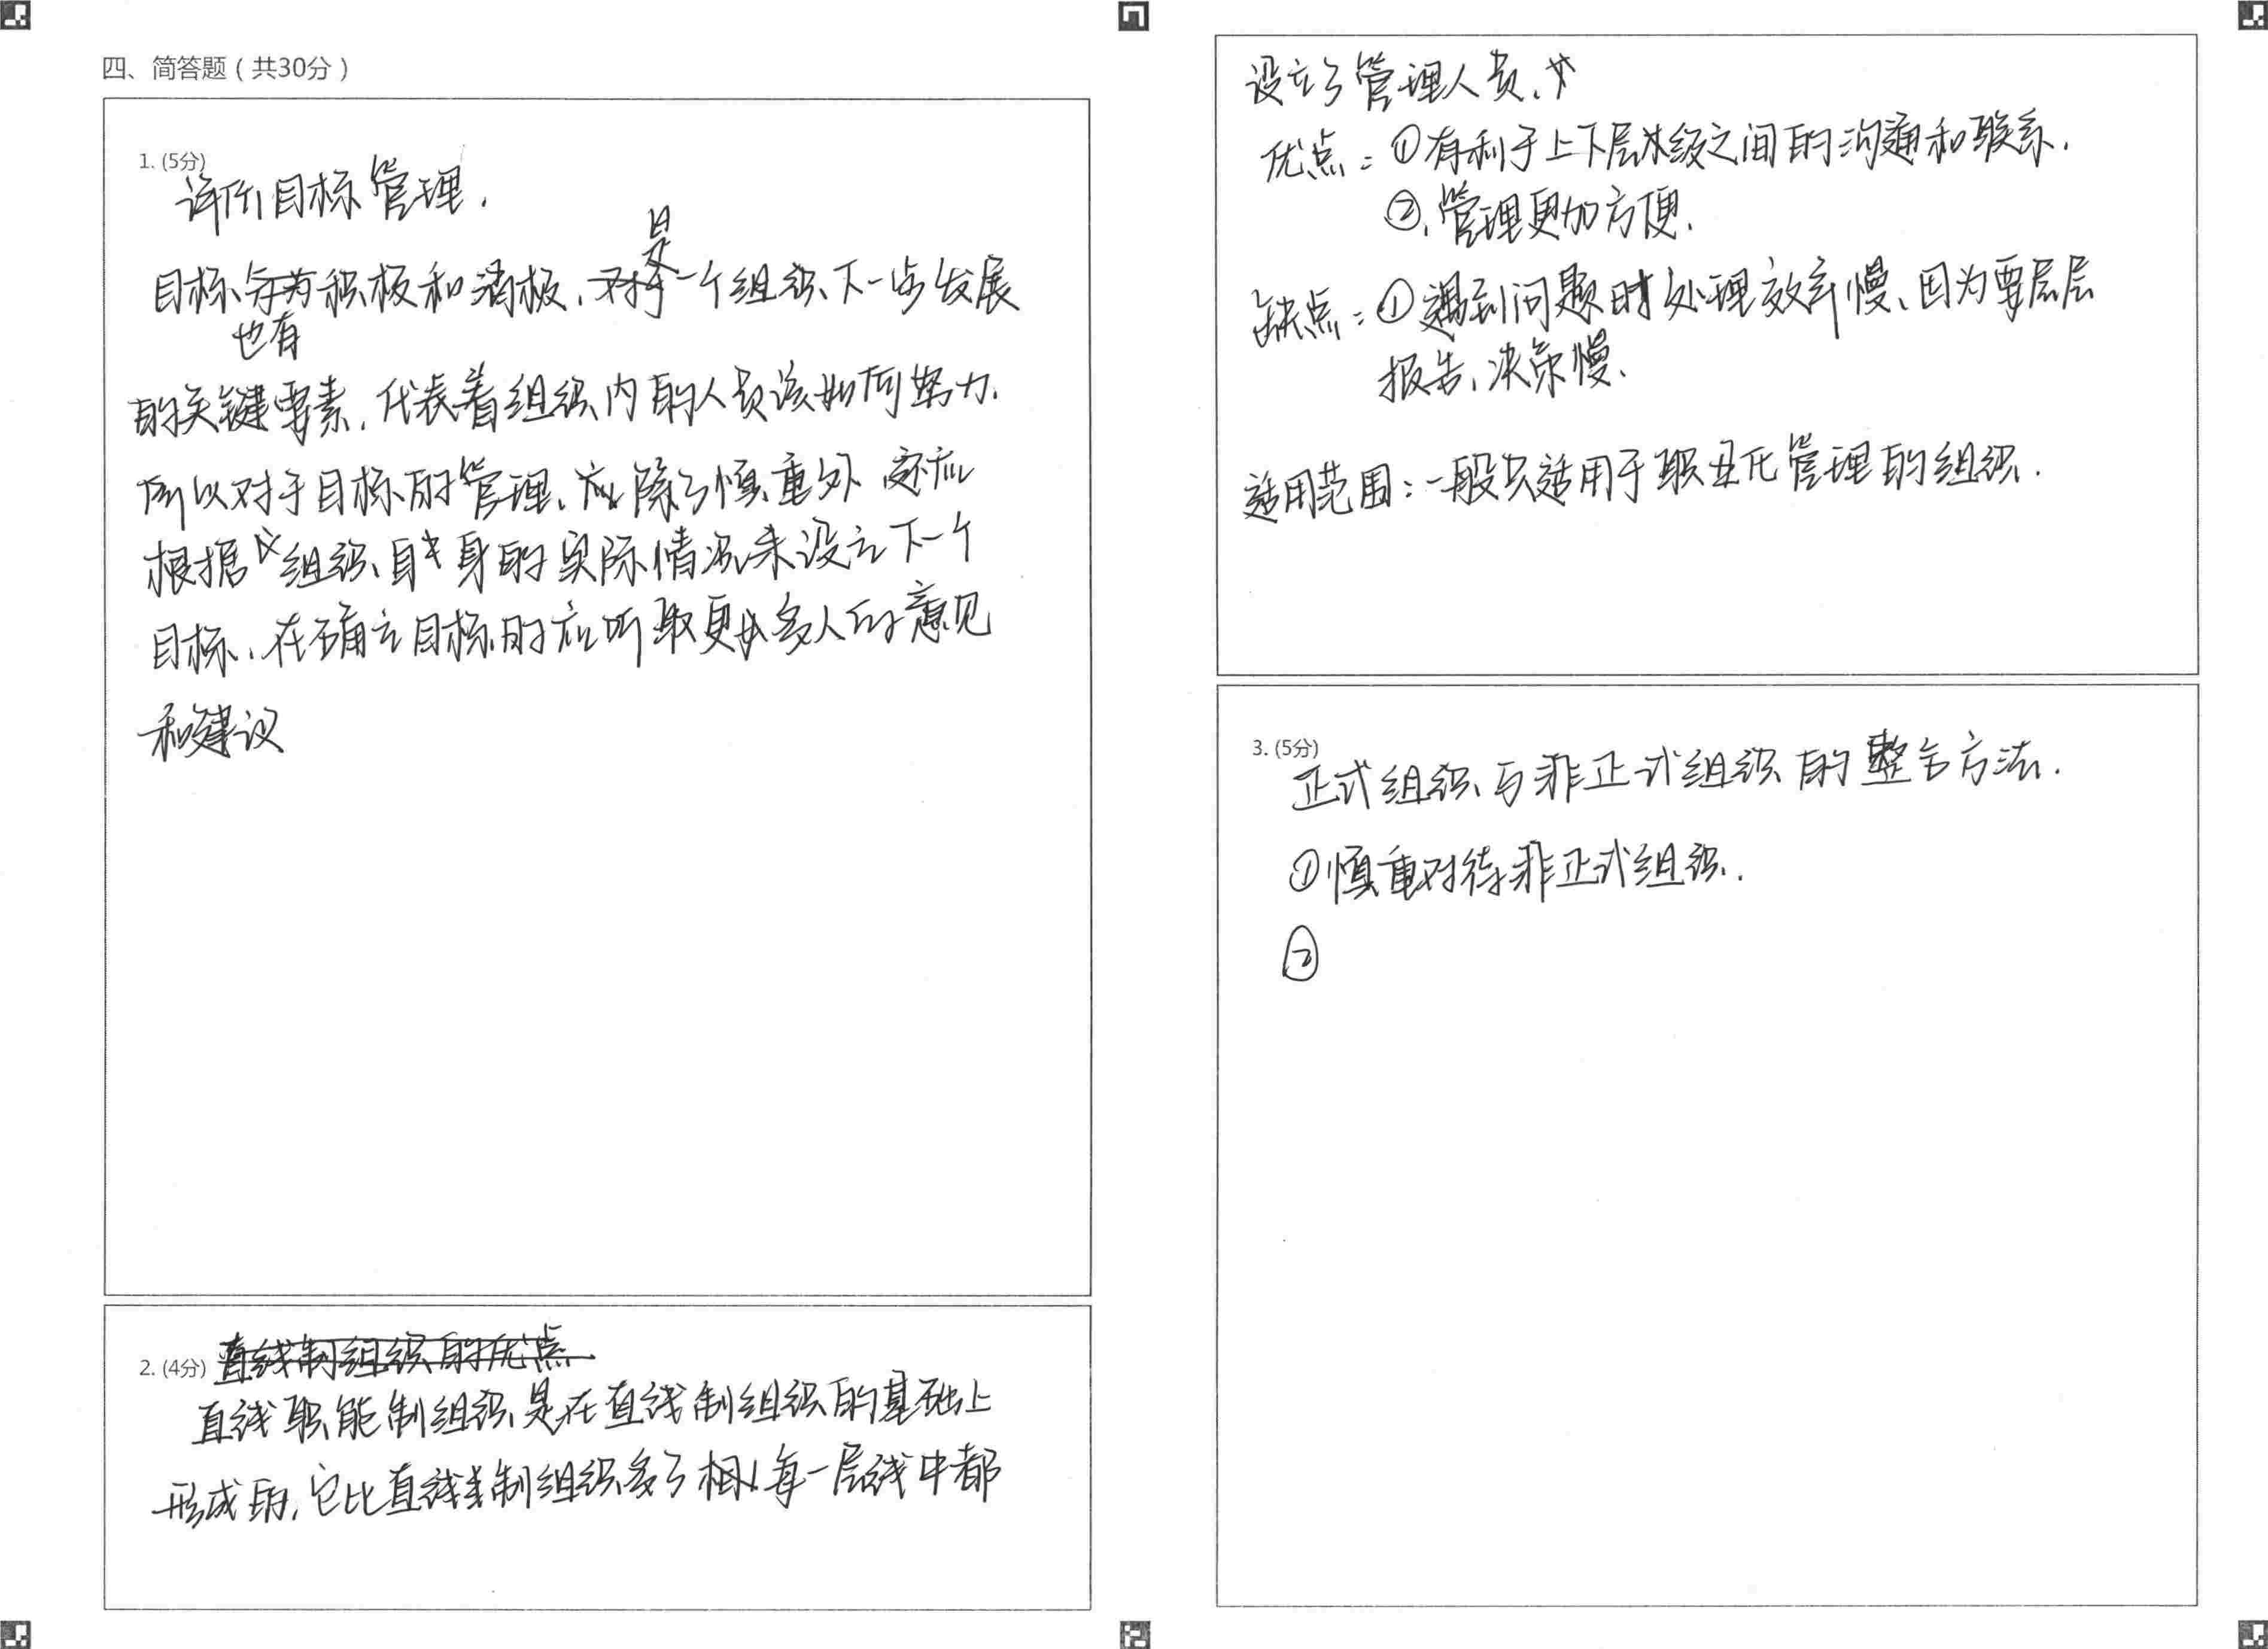 四、简答题（共30分）
1. (5分)
评析目标管理.
目标也有积极和消极、是一个组织下一步发展
的关键要素.代表着组织内的人员该如何努力.
所以对于目标的管理、除了慎重外还应
根据组织自身的实际情况来设立下一个
目标.在确立目标时应听取更多人的意见
和建议
2. (4分) 直线制组织的优点
直线职能制组织是在直线制组织的基础上
形成的,它比直线制组织多了相,每一层级中都
设立了管理人员、
优点：①有利于上下层级之间的沟通和联系.
②.管理更加方便.
缺点：①遇到问题时处理效率慢、因为要层层
报告,决策慢.
适用范围：一般只适用于职业化管理的组织.
3. (5分)
正式组织与非正式组织的整合方法.
①慎重对待非正式组织.
②